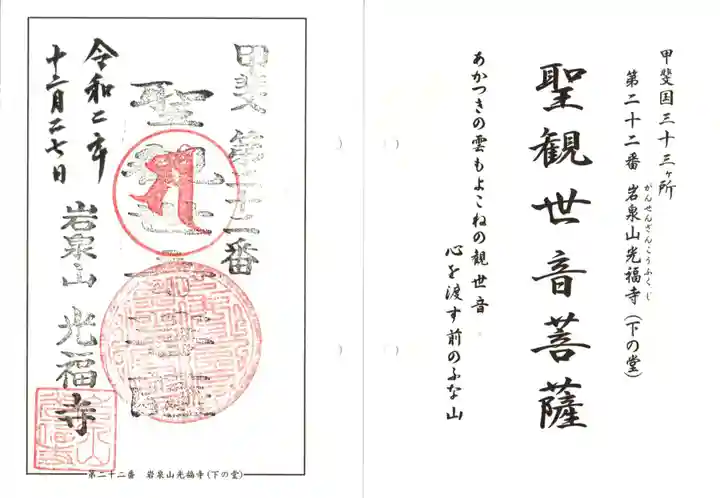 甲斐国三十三ヶ所
第二十二番 岩泉山光福寺(下の堂)
がんせんざんこうふくじ
聖観世音菩薩
あかつきの雲もよこねの観世音
心を渡す前のふな山
甲斐第二十二番
聖観世音菩薩
令和二年
十二月二七日
岩泉山 光福寺
第二十二番 岩泉山光福寺(下の堂)